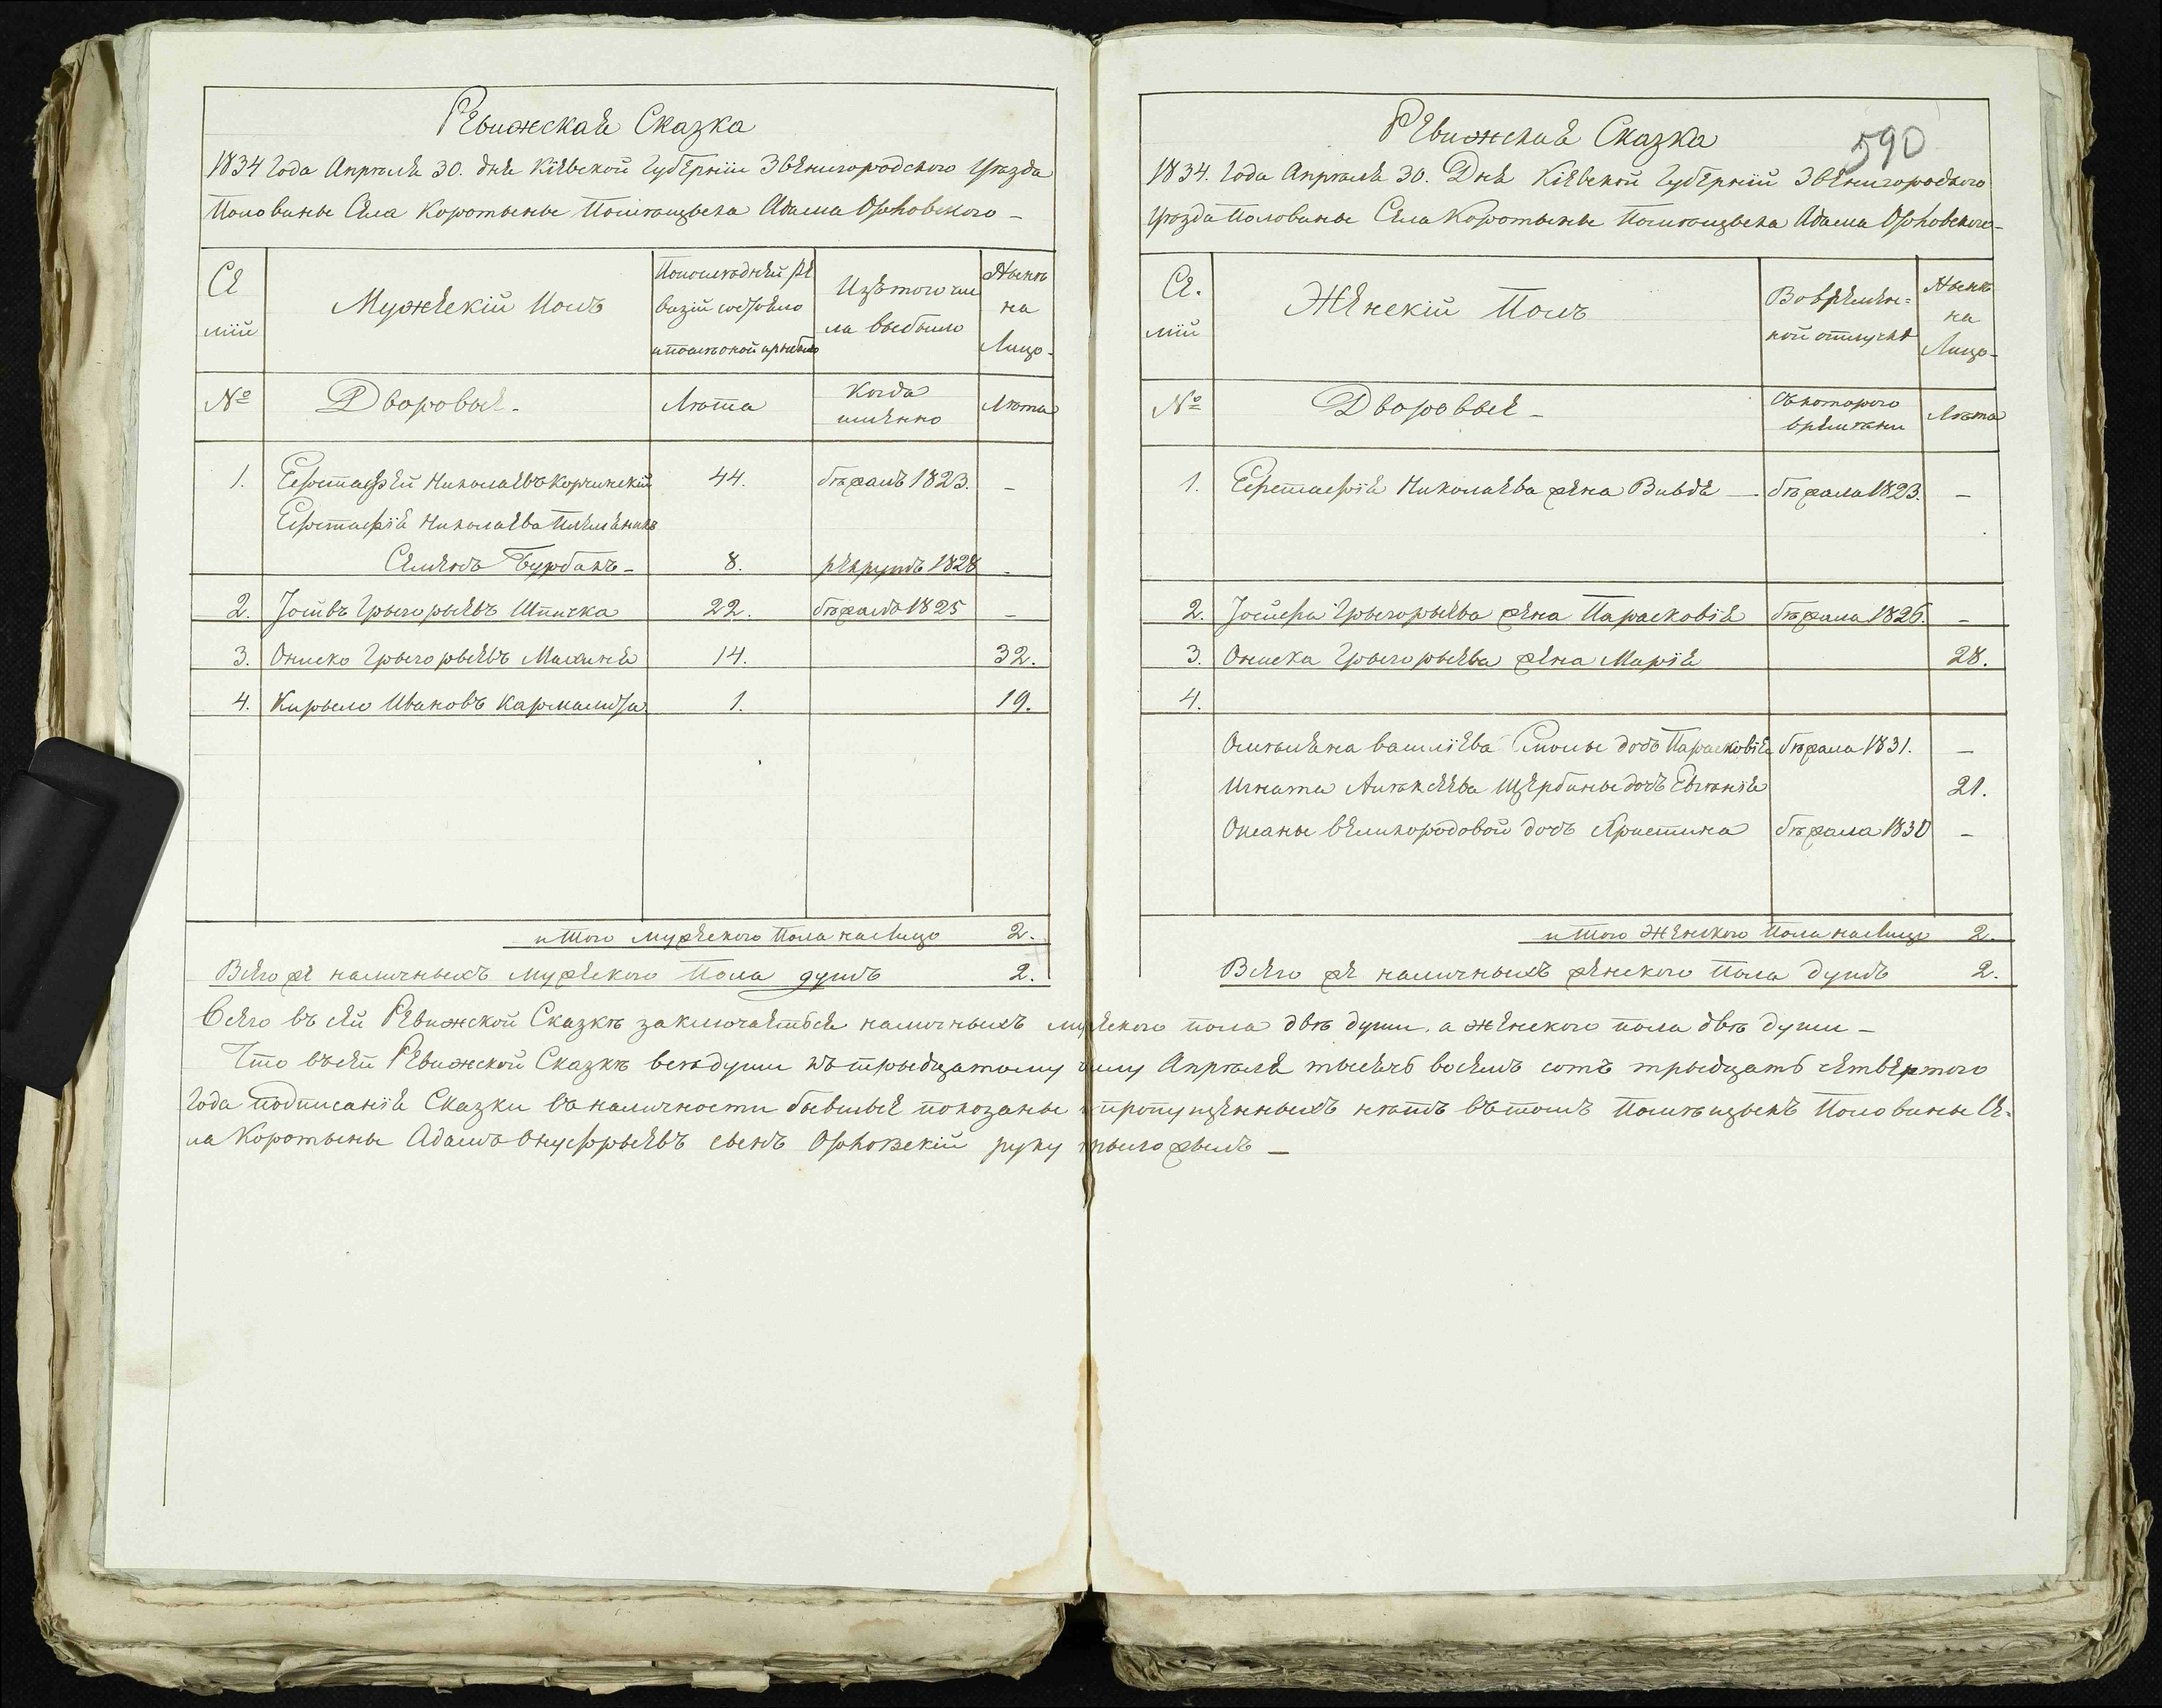 Ревижская Сказка
1834 Года Апрѣля 30. дня Кіевской Губерніи Звенигородского Уѣзда
Половины Села Коротыны Помѣщыка Адама Орховского -
Се
мїй
Мужескій Полъ
Попослѣдней ре
визій состояло
ипослѣоной прыбыло
Изътого чи
ла выбыло
Нынѣ
на
Лицо-
№
Дворовые-
Лѣта
Когда
именно
Лѣта
1. Ефстафей Николаевъ Корчинскій 44. бѣжалъ 1823. -
Ефстафія Николаева Племеникъ
Семенъ Бурбанъ- 8. рекрутъ 1828 -
2. Іосивъ Грыгорыевъ Шпичка 22. бѣжалъ 1825 -
3. Ониско Грыгорыевъ Махиня 14. 32.
4. Кирыло Ивановъ 1. 19.
итого мужеского Пола налицо 2.
Всего же наличныхъ мужеского Пола душъ 2.
590
Ревижская Сказка
1834. Года Апрѣля 30. Дня Кіевской Губерній Звенигородского
Уѣзда Половины Села Коротыны Помѣщыка Адама Орховского-
Се.
мїй
Женскій Полъ
Вовремен=
ной отлучкѣ
Нынѣ
на
Лицо-
№
Дворовые-
Съкоторого
времѣни
Лѣта
1. Ефстафія Николаева жена Вивдя - бѣжала 1823. -
2. Іосифа Грыгорыева жена Парасковія бѣжала 1826. -
3. Ониска Грыгорыева жена Марія 28.
4.
Омельяна василіева дочъ Парасковія бѣжала 1831. -
Игната Алѣксеева Щербины дочъ Евгѣнія 21.
Оксаны великородовой дочъ Христина бѣжала 1830 -
итого Женского Пола налицо 2.
Всего же наличныхъ женского Пола душъ 2.
Всего въ сей Ревижской Сказкѣ заключаетьсе наличныхъ мужеского пола двѣ души, а женского пола двѣ души -
Што въсей Ревижской Сказкѣ всѣ души къ трыдцатому чслу Апрѣля тысечь восемъ сотъ трыдцать четвертого
Года подписанія Сказки въ наличности бывшые показаны и пропущенныхъ нѣтъ въ томъ Помѣщыкъ Половины Се-
ла Коротыны Адамъ Онуфрыевъ сынъ Орховскій руку прыложылъ -